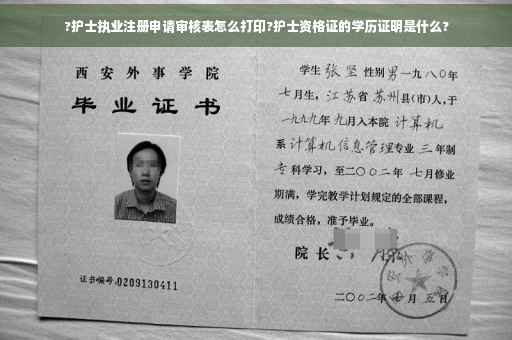 ?护士执业注册申请审核表怎么打印?护士资格证的学历证明是什么?
西安外事学院
毕业证书
证书编号:0209130411
学生 张坚 性别 男 一九八〇年
七月生, 江苏省 苏州 县(市)人,于
一九九九年 九月入本院 计算机
系 计算机信息管理 专业 三 年制
专 科学习,至二〇〇二年 七月修业
期满,学完教学计划规定的全部课程,
成绩合格,准予毕业。
院长
二〇〇二年 月 五日